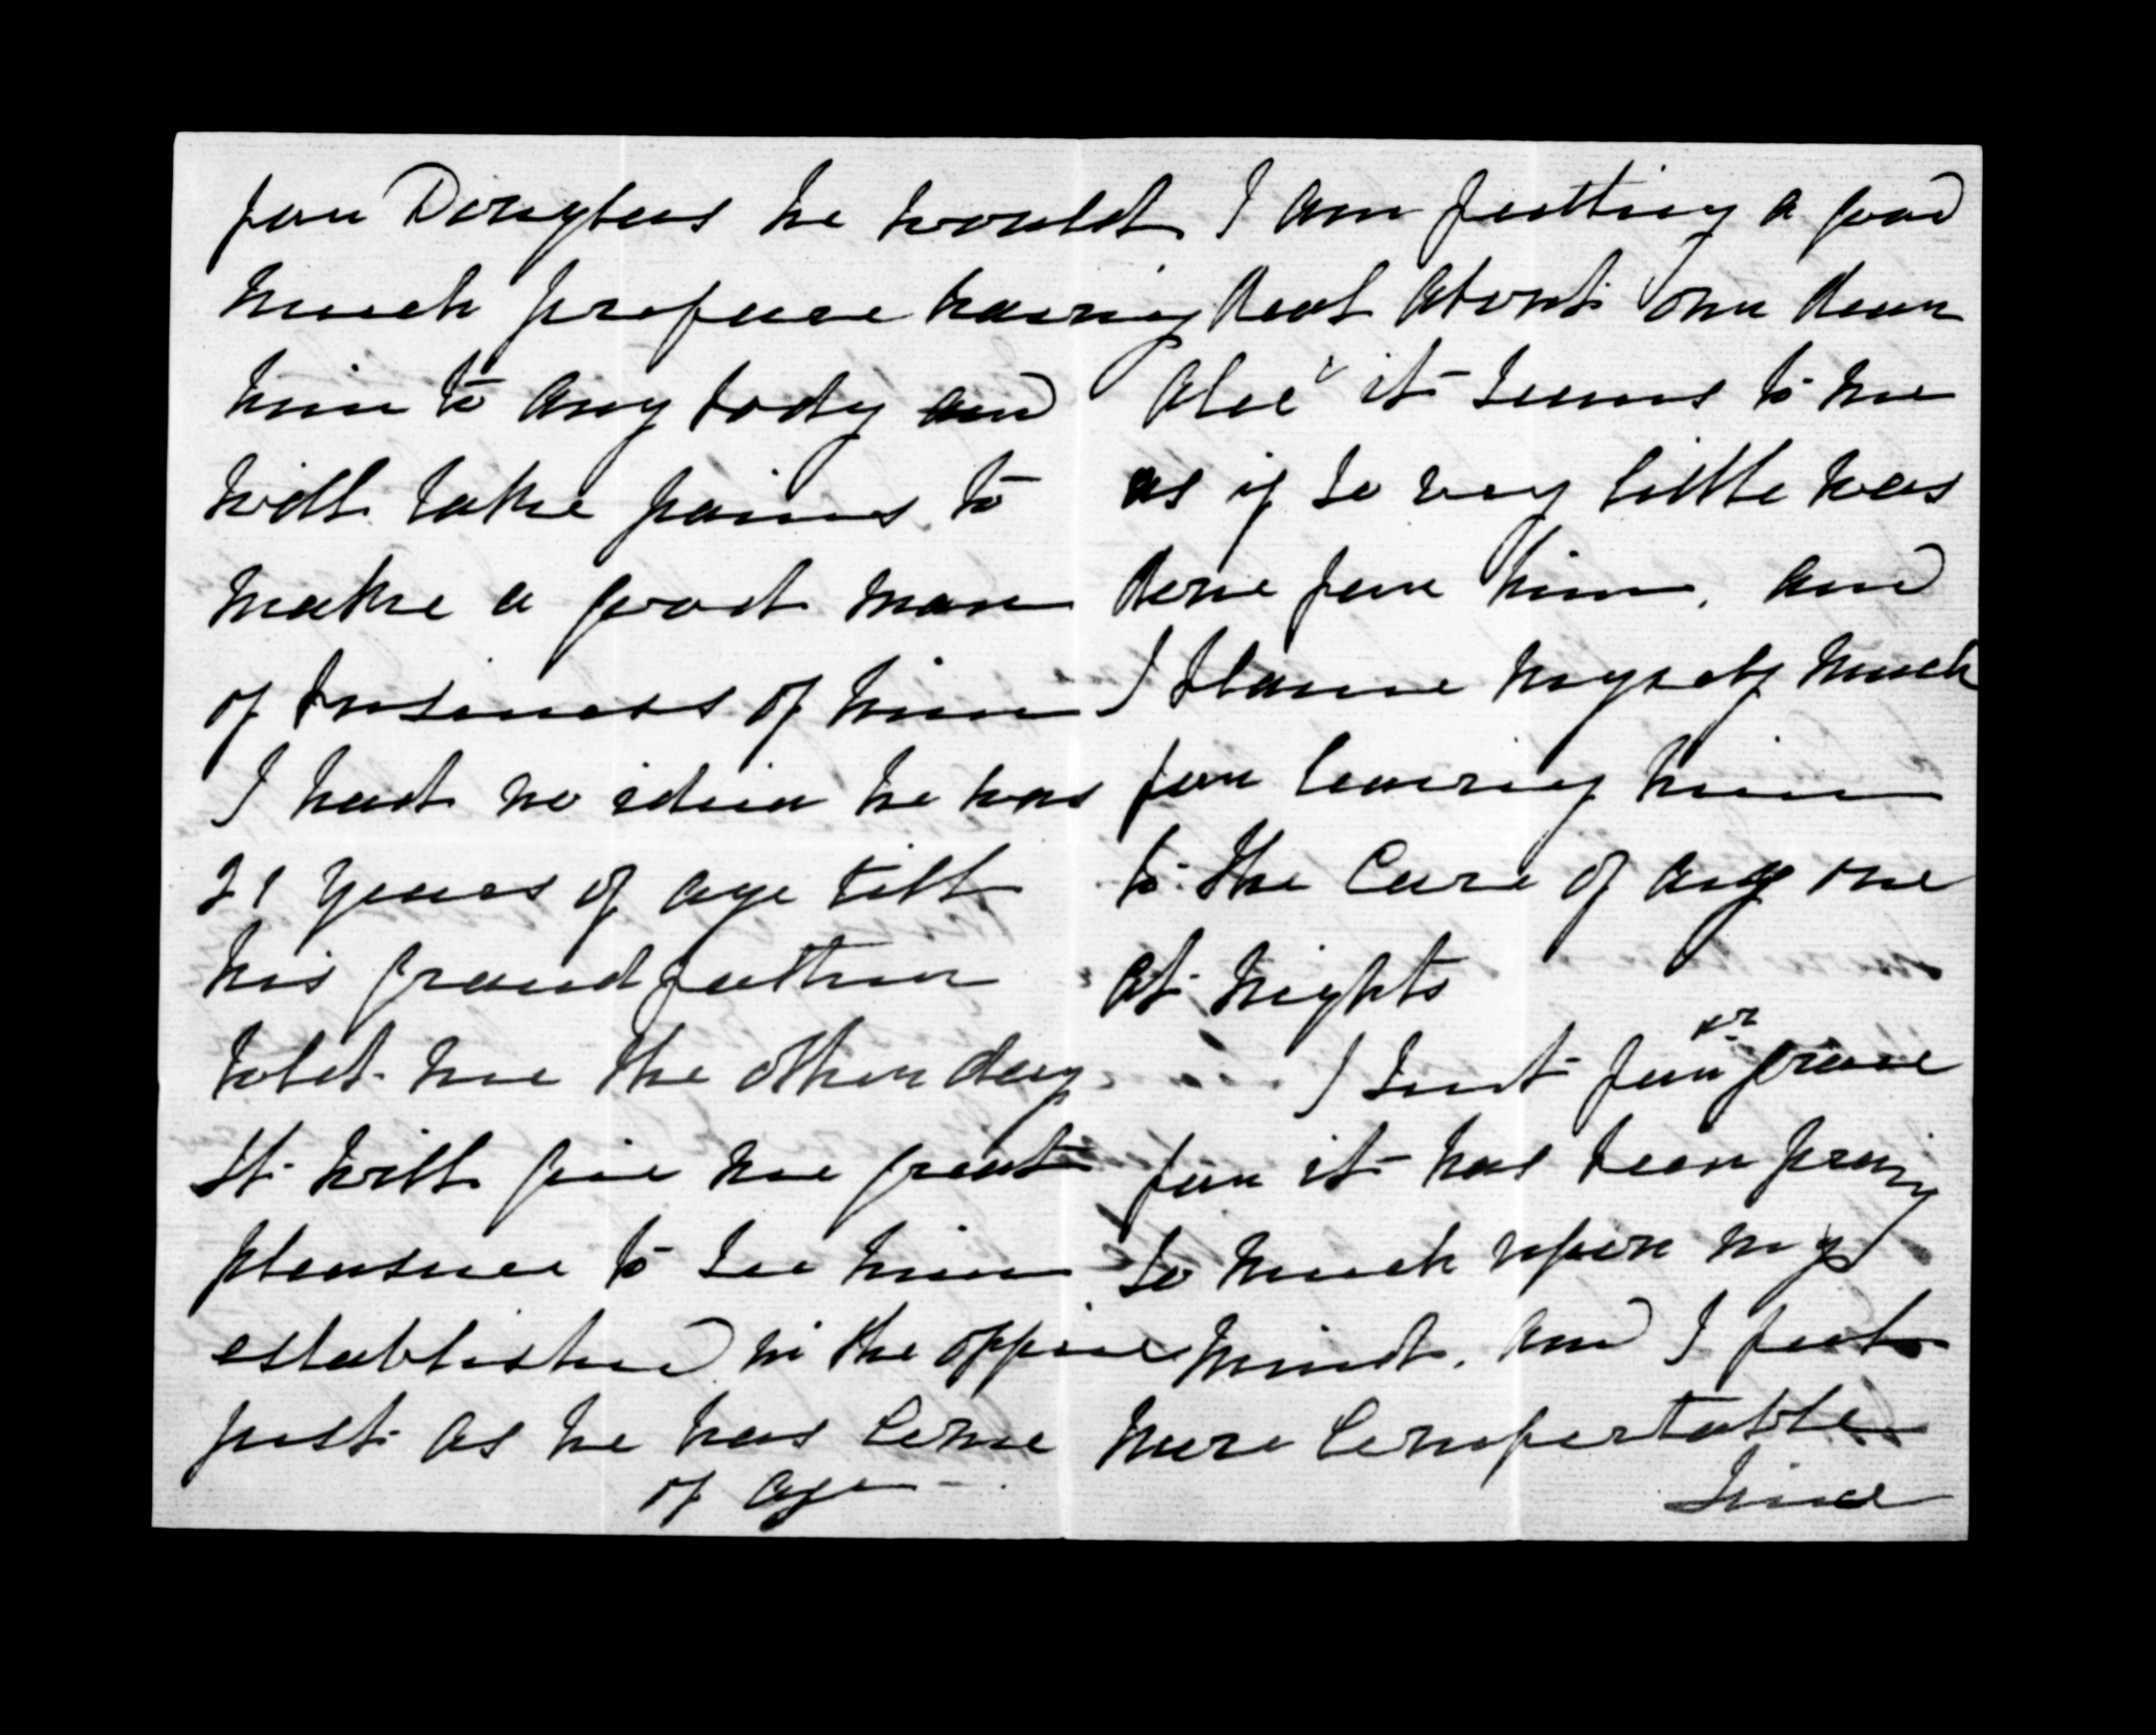 for Douglas he would
much prefere having
him to any body and
will take pains to
make a good man
of business of him
I had no idea he was
21 years of age till
his grandfather
told me the other day
It will give me great
pleasure to see him
established in the office
just as he has come
of age -
I am fretting a good
deal about our dear
Alec it seems to me
as if so very little was
done for him, and
I blame myself much
for leaving him
to the care of any one
at nights
I sent for Dr Grace
for it has been preying
so much upon my
mind, and I feel
more comfortable
since